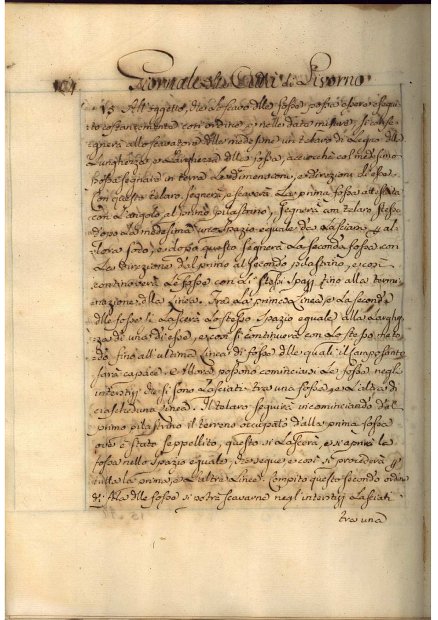 Giornale di Livorno
15 All'oggetto, che lo scavo delle fosse possa essere esegui-
to costantemente con ordine, e nelle date misure, si conse-
gnerà allo scavatore delle medesime un telaro di legno della
lunghezza, e larghezza della fossa, acciochè col medesimo
possa segnare in terra le dimensioni, e direzioni di esse.
Con questo telaro segnerà, e scaverà la prima fossa
con l'angolo al primo pilastrino, segnerà con telaro stesso
dopo la medesima uno spazio eguale da lasciarsi al-
lora sodo, e dopo questo segnerà la seconda fossa con
la direzione dal primo al secondo pilastrino, e così
continuerà le fosse con li stessi spazj fino alla termi-
nazione della linea. Tra la prima linea, e la seconda
delle fosse si lascerà lo stesso spazio eguale alla larghez-
za di una di esse, e così si continuerà con lo stesso meto-
do fino all'ultima linea di fosse delle quali il Camposanto
sarà capace. Allora possono cominciarsi le fosse negli
interstizj che si sono lasciati tra una fossa, e l'altra di
ciascheduna linea. Il telaro seguirà incominciando dal
primo pilastrino il terreno occupato dalla prima fossa
ove è stato seppellito, questo si lascerà, e si aprirà la
fossa nello spazio eguale, che segue, e così si procederà per
tutta la prima, e l'altre linee. Compito questo secondo ordine
delle fosse si potrà scavarne negl'interstizj lasciati
tra una